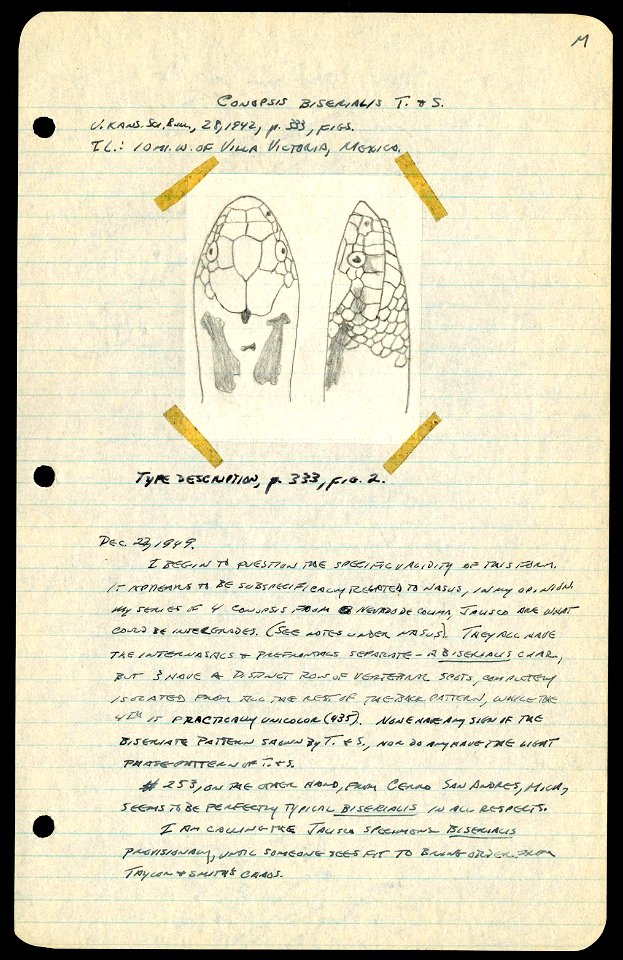 M
CONOPSIS BISERIALIS T. & S.
U. KANS. SCI. BULL., 28, 1942, p. 333, FIGS.
T.L.: 10 MI. W. OF VILLA VICTORIA, MEXICO.
TYPE DESCRIPTION, p. 333, FIG. 2.
DEC. 23, 1949.
I BEGIN TO QUESTION THE SPECIFIC VALIDITY OF THIS FORM.
IT APPEARS TO BE SUBSPECIFICALLY RELATED TO NASUS, IN MY OPINION.
MY SERIES OF 4 CONOPSIS FROM NEVADO DE COLIMA, JALISCO ARE WHAT
COULD BE INTERGRADES. (SEE NOTES UNDER NASUS). THEY ALL HAVE
THE INTERNASALS & PREFRONTALS SEPARATE - A BISERIALIS CHAR.,
BUT 3 HAVE A DISTINCT ROW OF VERTEBRAL SPOTS, COMPLETELY
ISOLATED FROM ALL THE REST OF THE BACK PATTERN, WHILE THE
4TH IS PRACTICALLY UNICOLOR (935). NONE HAVE ANY SIGN IF THE
BISERIATE PATTERN SHOWN BY T. & S., NOR DO ANY HAVE THE LIGHT
PHASE PATTERN OF T. & S.
# 253, ON THE OTHER HAND, FROM CERRO SAN ANDRES, MICH.,
SEEMS TO BE PERFECTLY TYPICAL BISERIALIS IN ALL RESPECTS.
I AM CALLING THE JALISCO SPECIMENS BISERIALIS
PROVISIONALLY, UNTIL SOMEONE SEES FIT TO BRING ORDER FROM
TAYLOR & SMITH'S CHAOS.